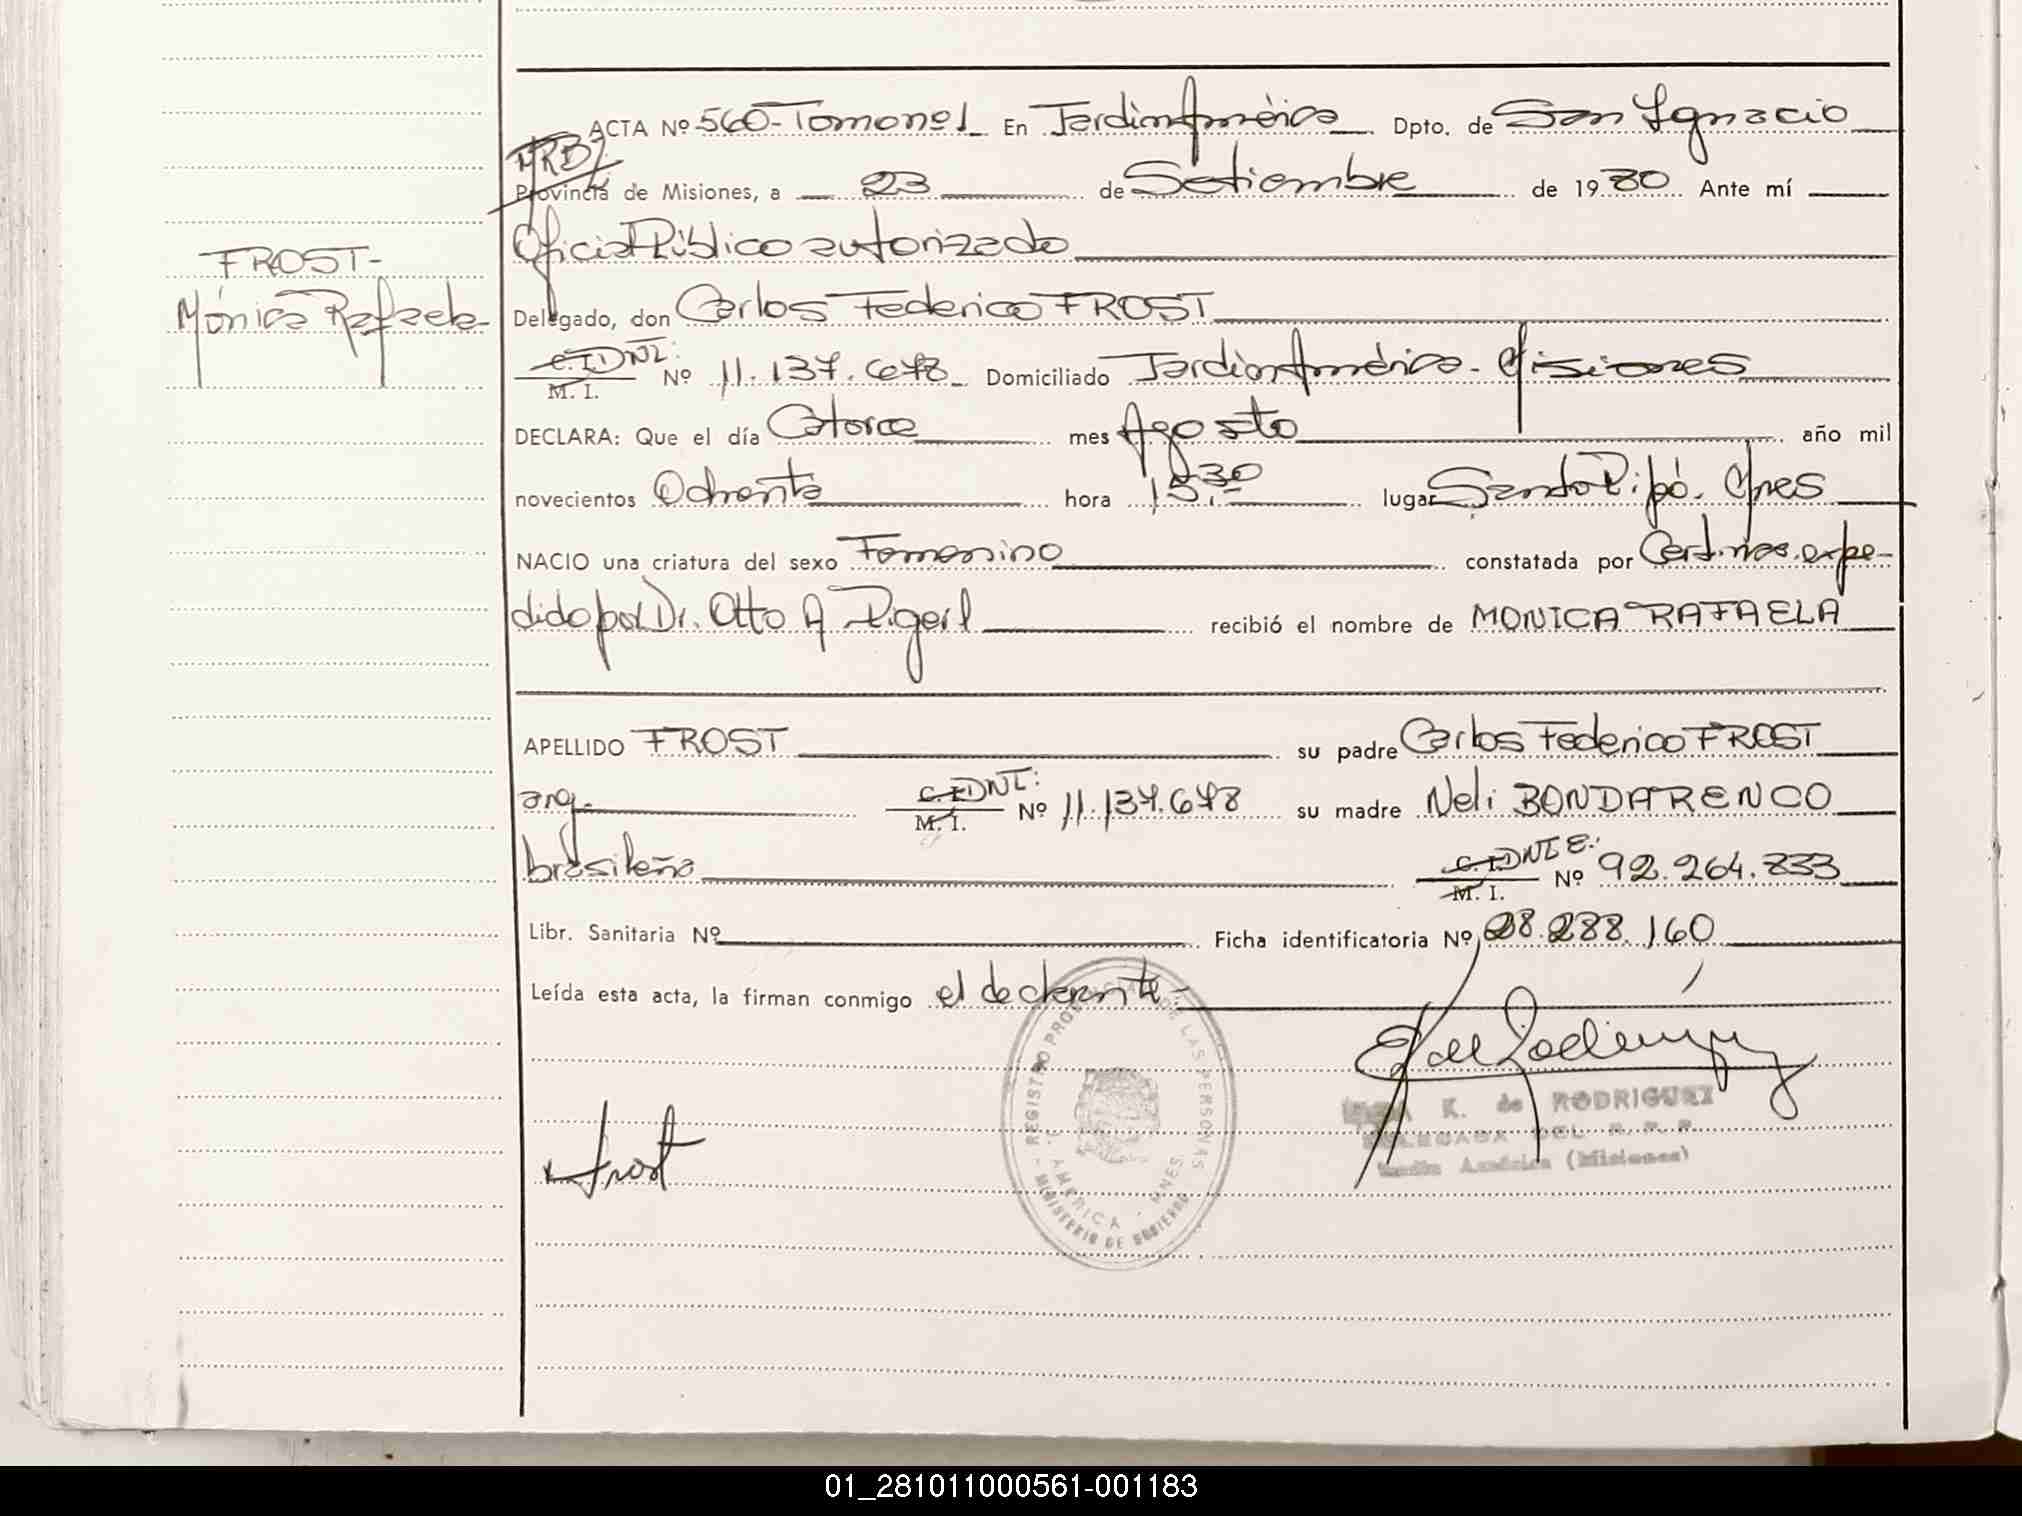 ACTA Nº 560-Tomo nº1 En Jardín América Dpto. de San Ignacio
Provincia de Misiones, a 23 de Setiembre de 1980 Ante mí
Oficial Público autorizado
FROST-
Mónica Rafaela
Delegado, don Carlos Federico FROST
C.I. DNI: M. I. Nº 11.137.678 Domiciliado Jardín América - Misiones
DECLARA: Que el día Catorce mes Agosto año mil
novecientos Ochenta hora 15.30 lugar Santo Pipó. Mnes
NACIO una criatura del sexo Femenino constatada por Cert. expe-
dido por Dr. Otto A recibió el nombre de MONICA RAFAELA
APELLIDO FROST su padre Carlos Federico FROST
arg. C.I. DNI: M. I. Nº 11.137.678 su madre Neli BONDARENCO
brasileña C.I. DNIE: M. I. Nº 92.264.833
Libr. Sanitaria Nº Ficha identificatoria Nº 28.288.160
Leída esta acta, la firman conmigo el declarante-
REGISTRO PROVINCIAL DE LAS PERSONAS
AMERICA - MNES.
MINISTERIO DE GOBIERNO
K. de RODRIGUEZ
DELEGADA DEL R. P. P.
Jardín América (Misiones)
Frost
01_281011000561-001183